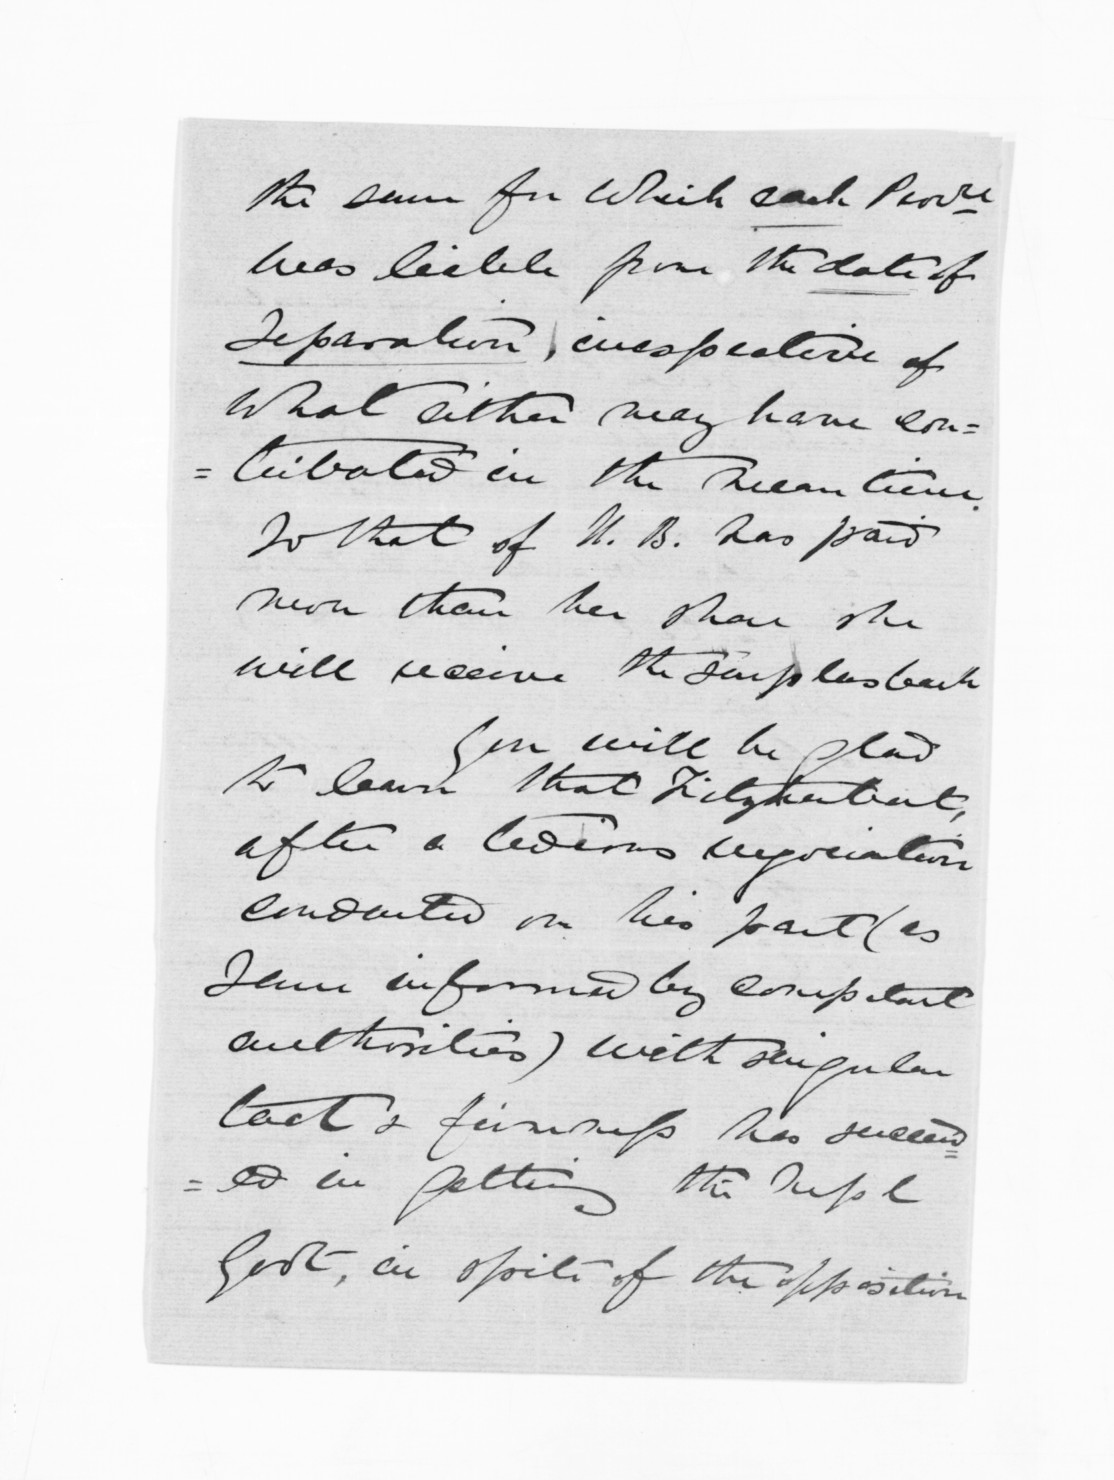 the sum for which each Prov.ce
was liable from the date of
Separation, irrespective of
what either may have con=
=tributed in the mean time.
So that if H. B. has paid
more than her share she
will receive the surplus back
You will be glad
to learn that Fitzherbert,
after a tedious negociation
conducted on his part (as
I am informed by competent
authorities) with singular
tact & firmness has succeed=
=ed in getting the Impl
Govt, in spite of the opposition